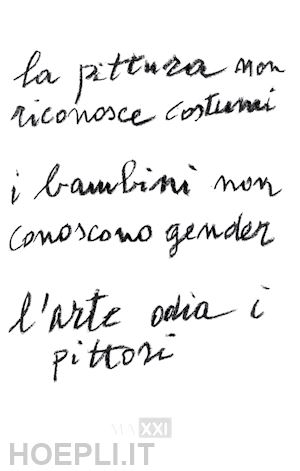 la pittura non
riconosce costumi
i bambini non
conoscono gender
l'arte odia i
pittori
MAXXI
HOEPLI.IT